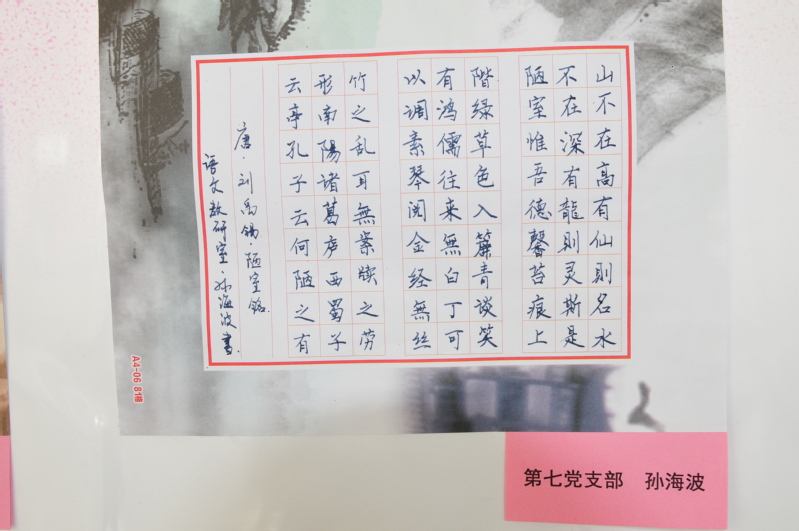 山不在高有仙則名水
不在深有龍則灵斯是
陋室惟吾德馨苔痕上
階緑草色入簾青谈笑
有鸿儒往来無白丁可
以调素琴阅金经無丝
竹之乱耳無案牍之劳
形南陽诸葛庐西蜀子
云亭孔子云何陋之有
唐·刘禹锡·陋室铭.
语文教研室·孙海波書.
A4-06 81格
第七党支部 孙海波